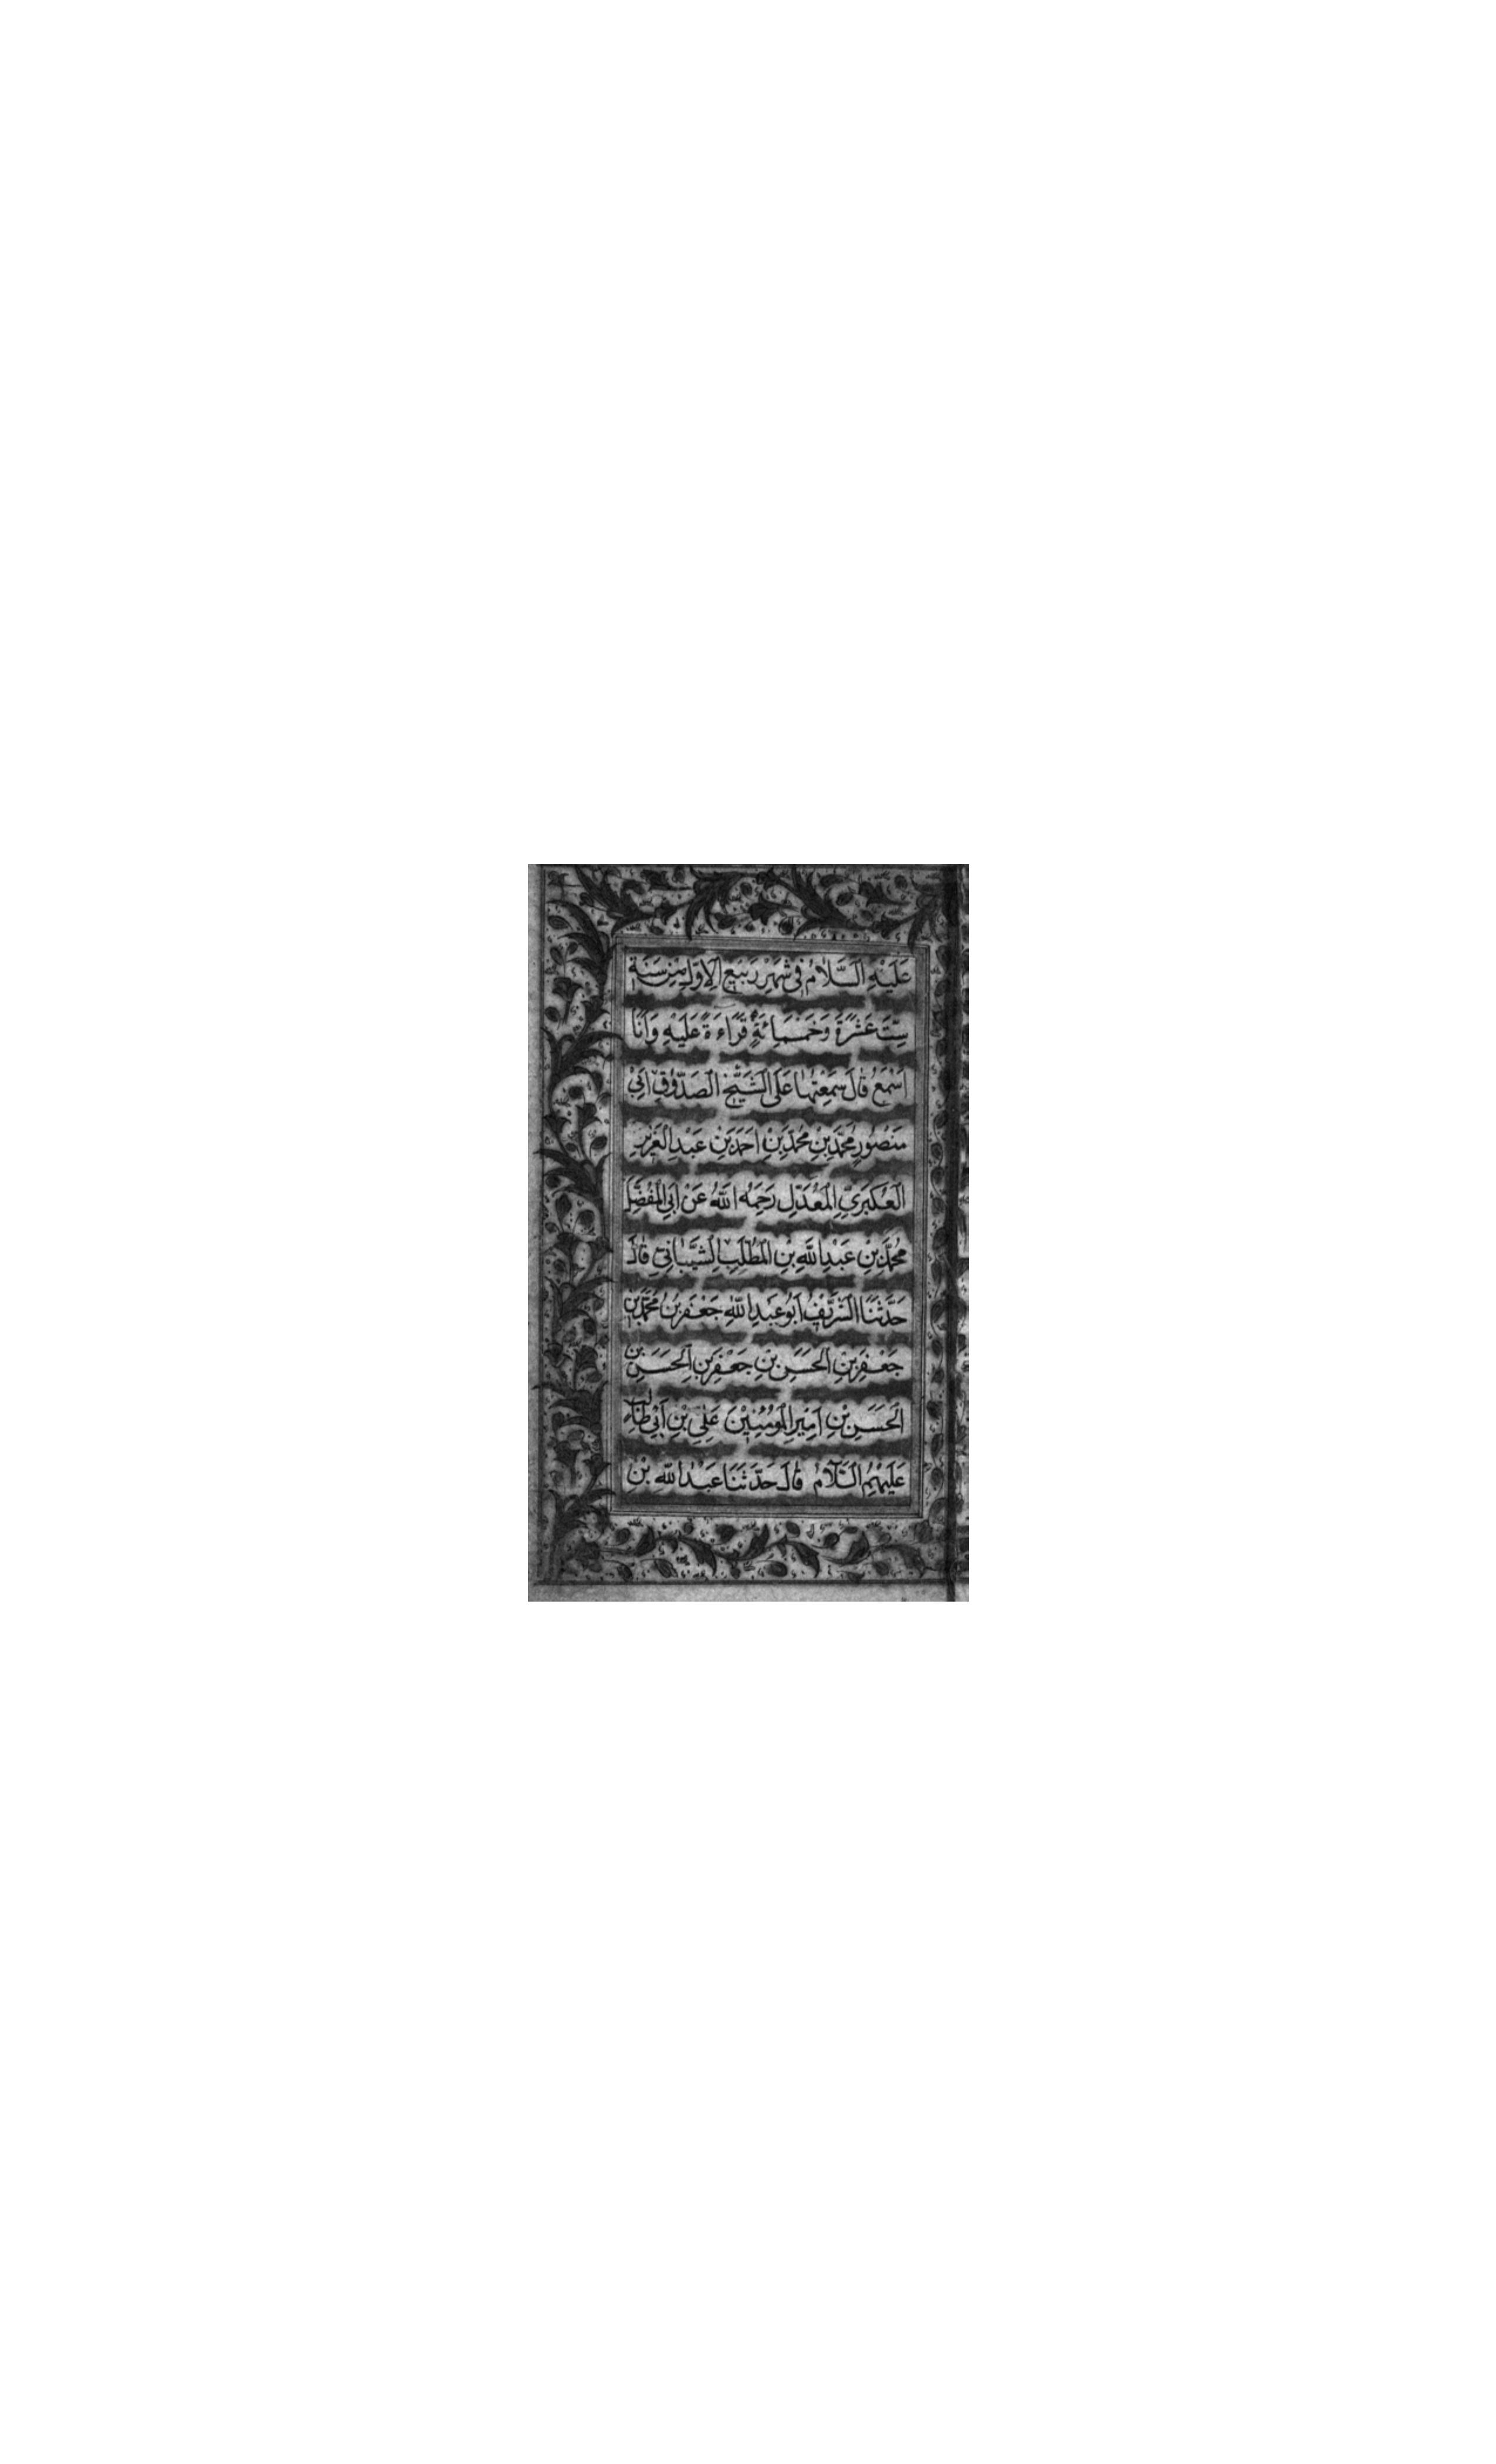 عَلَيْهِ السَّلَامُ فِي شَهْرِ رَبِيعِ الْأَوَّلِ مِنْ سَنَةِ
سِتَّ عَشْرَةَ وَخَمْسَمِائَةٍ قَرَاءَةً عَلَيْهِ وَأَنَا
أَسْمَعُ قَالَ سَمِعْتُهَا عَلَى الشَّيْخِ الصَّدُوقِ أَبِي
مَنْصُورِ مُحَمَّدِ بْنِ مُحَمَّدِ بْنِ أَحْمَدَ بْنِ عَبْدِ الْعَزِيزِ
الْعُكْبَرِيِّ الْمُعَدَّلِ رَحِمَهُ اللّٰهُ عَنْ أَبِي الْمُفَضَّلِ
مُحَمَّدِ بْنِ عَبْدِ اللّٰهِ بْنِ الْمُطَّلِبِ الشَّيْبَانِيِّ قَالَ
حَدَّثَنَا الشَّرِيفُ أَبُو عَبْدِ اللّٰهِ جَعْفَرُ بْنُ مُحَمَّدِ بْنِ
جَعْفَرِ بْنِ الْحَسَنِ بْنِ جَعْفَرِ بْنِ الْحَسَنِ بْنِ
الْحَسَنِ بْنِ أَمِيرِ الْمُؤْمِنِينَ عَلِيِّ بْنِ أَبِي طَالِبٍ
عَلَيْهِمُ السَّلَامُ قَالَ حَدَّثَنَا عَبْدُ اللّٰهِ بْنُ